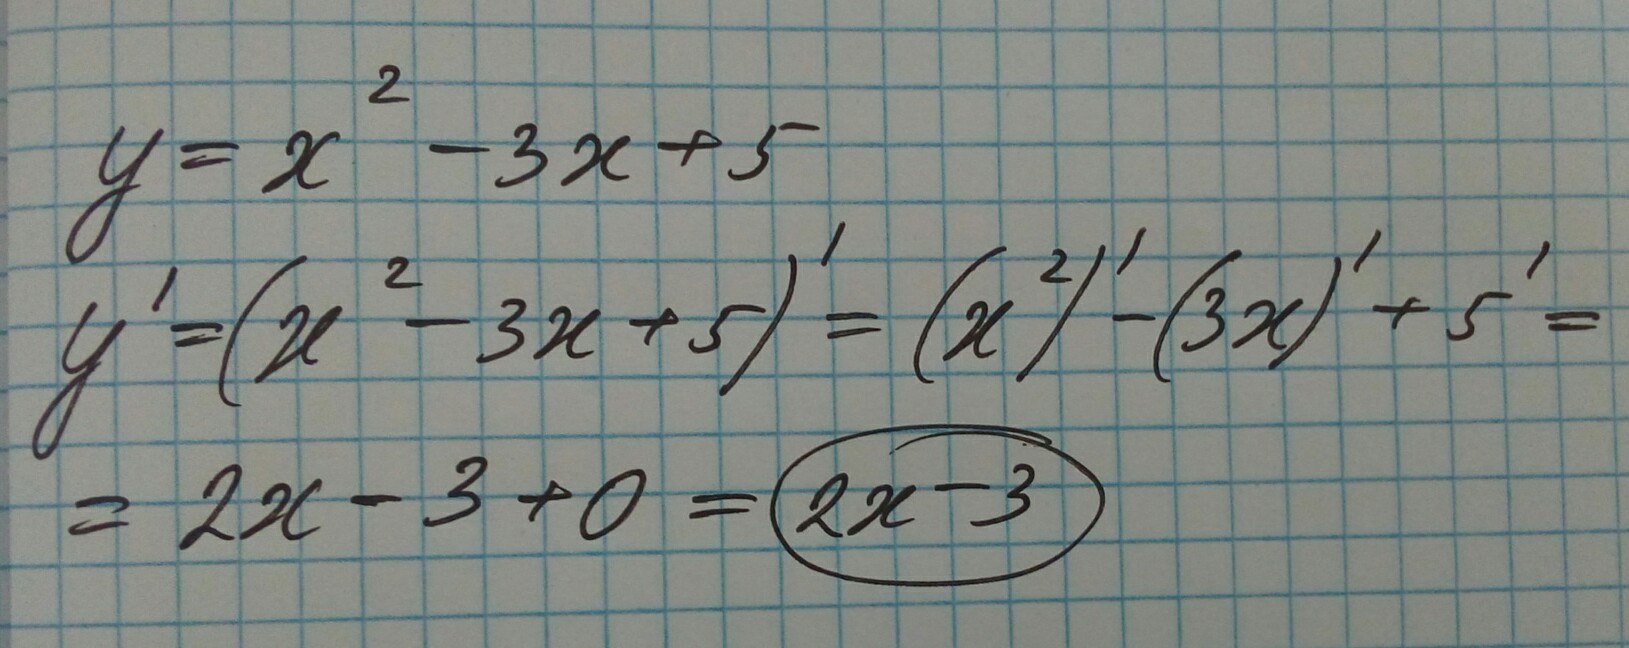 y = x² - 3x + 5
y' = (x² - 3x + 5)' = (x²)' - (3x)' + 5' =
= 2x - 3 + 0 = 2x - 3